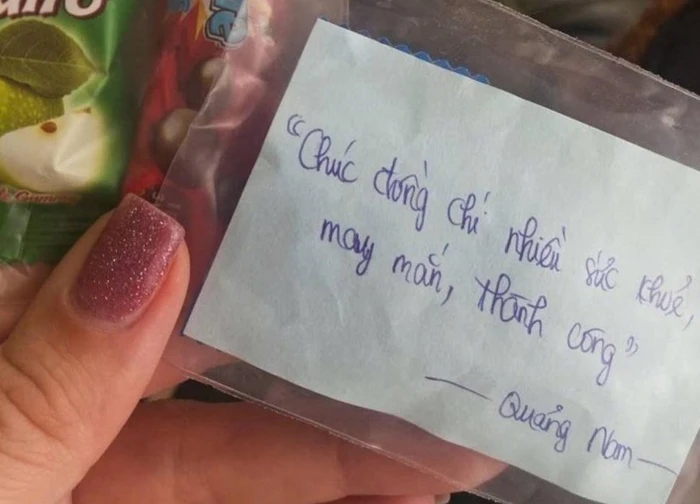 “Chúc đồng chí nhiều sức khoẻ,
may mắn, thành công”
— Quảng Nam —